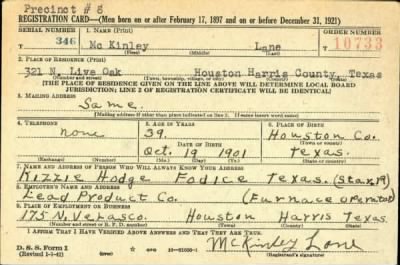 Precinct # 8
REGISTRATION CARD—(Men born on or after February 17, 1897 and on or before December 31, 1921)
SERIAL NUMBER 1. NAME (Print) ORDER NUMBER
346 McKinley Lane 10733
(First) (Middle) (Last)
2. PLACE OF RESIDENCE (Print)
321 N. Live Oak Houston Harris County, Texas
(Number and street) (Town, township, village, or city) (County) (State)
[THE PLACE OF RESIDENCE GIVEN ON THE LINE ABOVE WILL DETERMINE LOCAL BOARD
JURISDICTION; LINE 2 OF REGISTRATION CERTIFICATE WILL BE IDENTICAL]
3. MAILING ADDRESS
Same.
[Mailing address if other than place indicated on line 2. If same insert word same]
4. TELEPHONE 5. AGE IN YEARS 6. PLACE OF BIRTH
none 39. Houston Co.
DATE OF BIRTH (Town or county)
Oct. 19 1901 Texas.
(Exchange) (Number) (Mo.) (Day) (Yr.) (State or country)
7. NAME AND ADDRESS OF PERSON WHO WILL ALWAYS KNOW YOUR ADDRESS
Kizzie Hodge Fodice Texas.
8. EMPLOYER'S NAME AND ADDRESS
Lead Product Co. (Furnace operator)
9. PLACE OF EMPLOYMENT OR BUSINESS
175 N. Velasco. Houston Harris Texas.
(Number and street or R. F. D. number) (Town) (County) (State)
I AFFIRM THAT I HAVE VERIFIED ABOVE ANSWERS AND THAT THEY ARE TRUE.
D. S. S. Form 1
(Revised 1-1-42) McKinley Lane
(Registrant's signature)